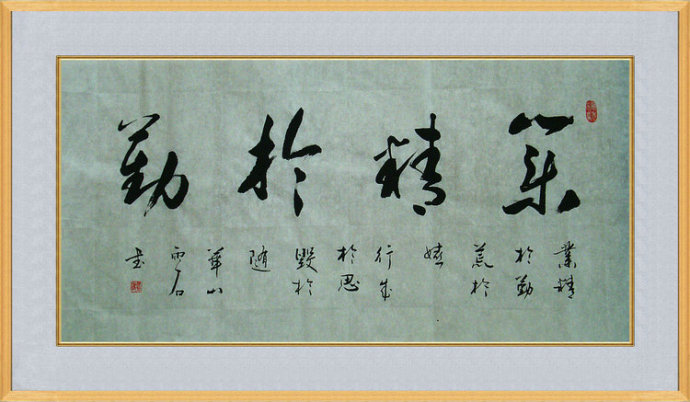 業精於勤
業精
於勤
荒於
嬉
行成
於思
毀於
隨
華山
雨石
書